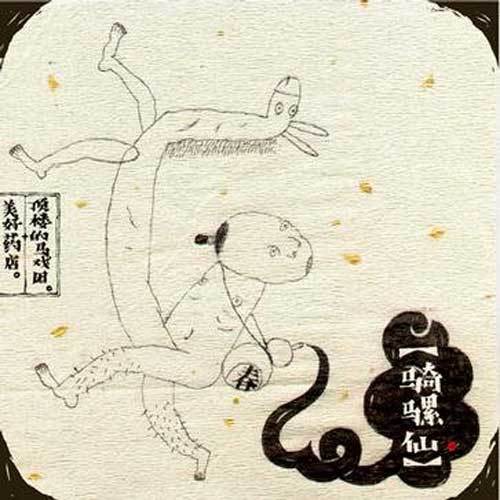 顶楼的马戏团。
美好药店。
春
【骑骡仙】